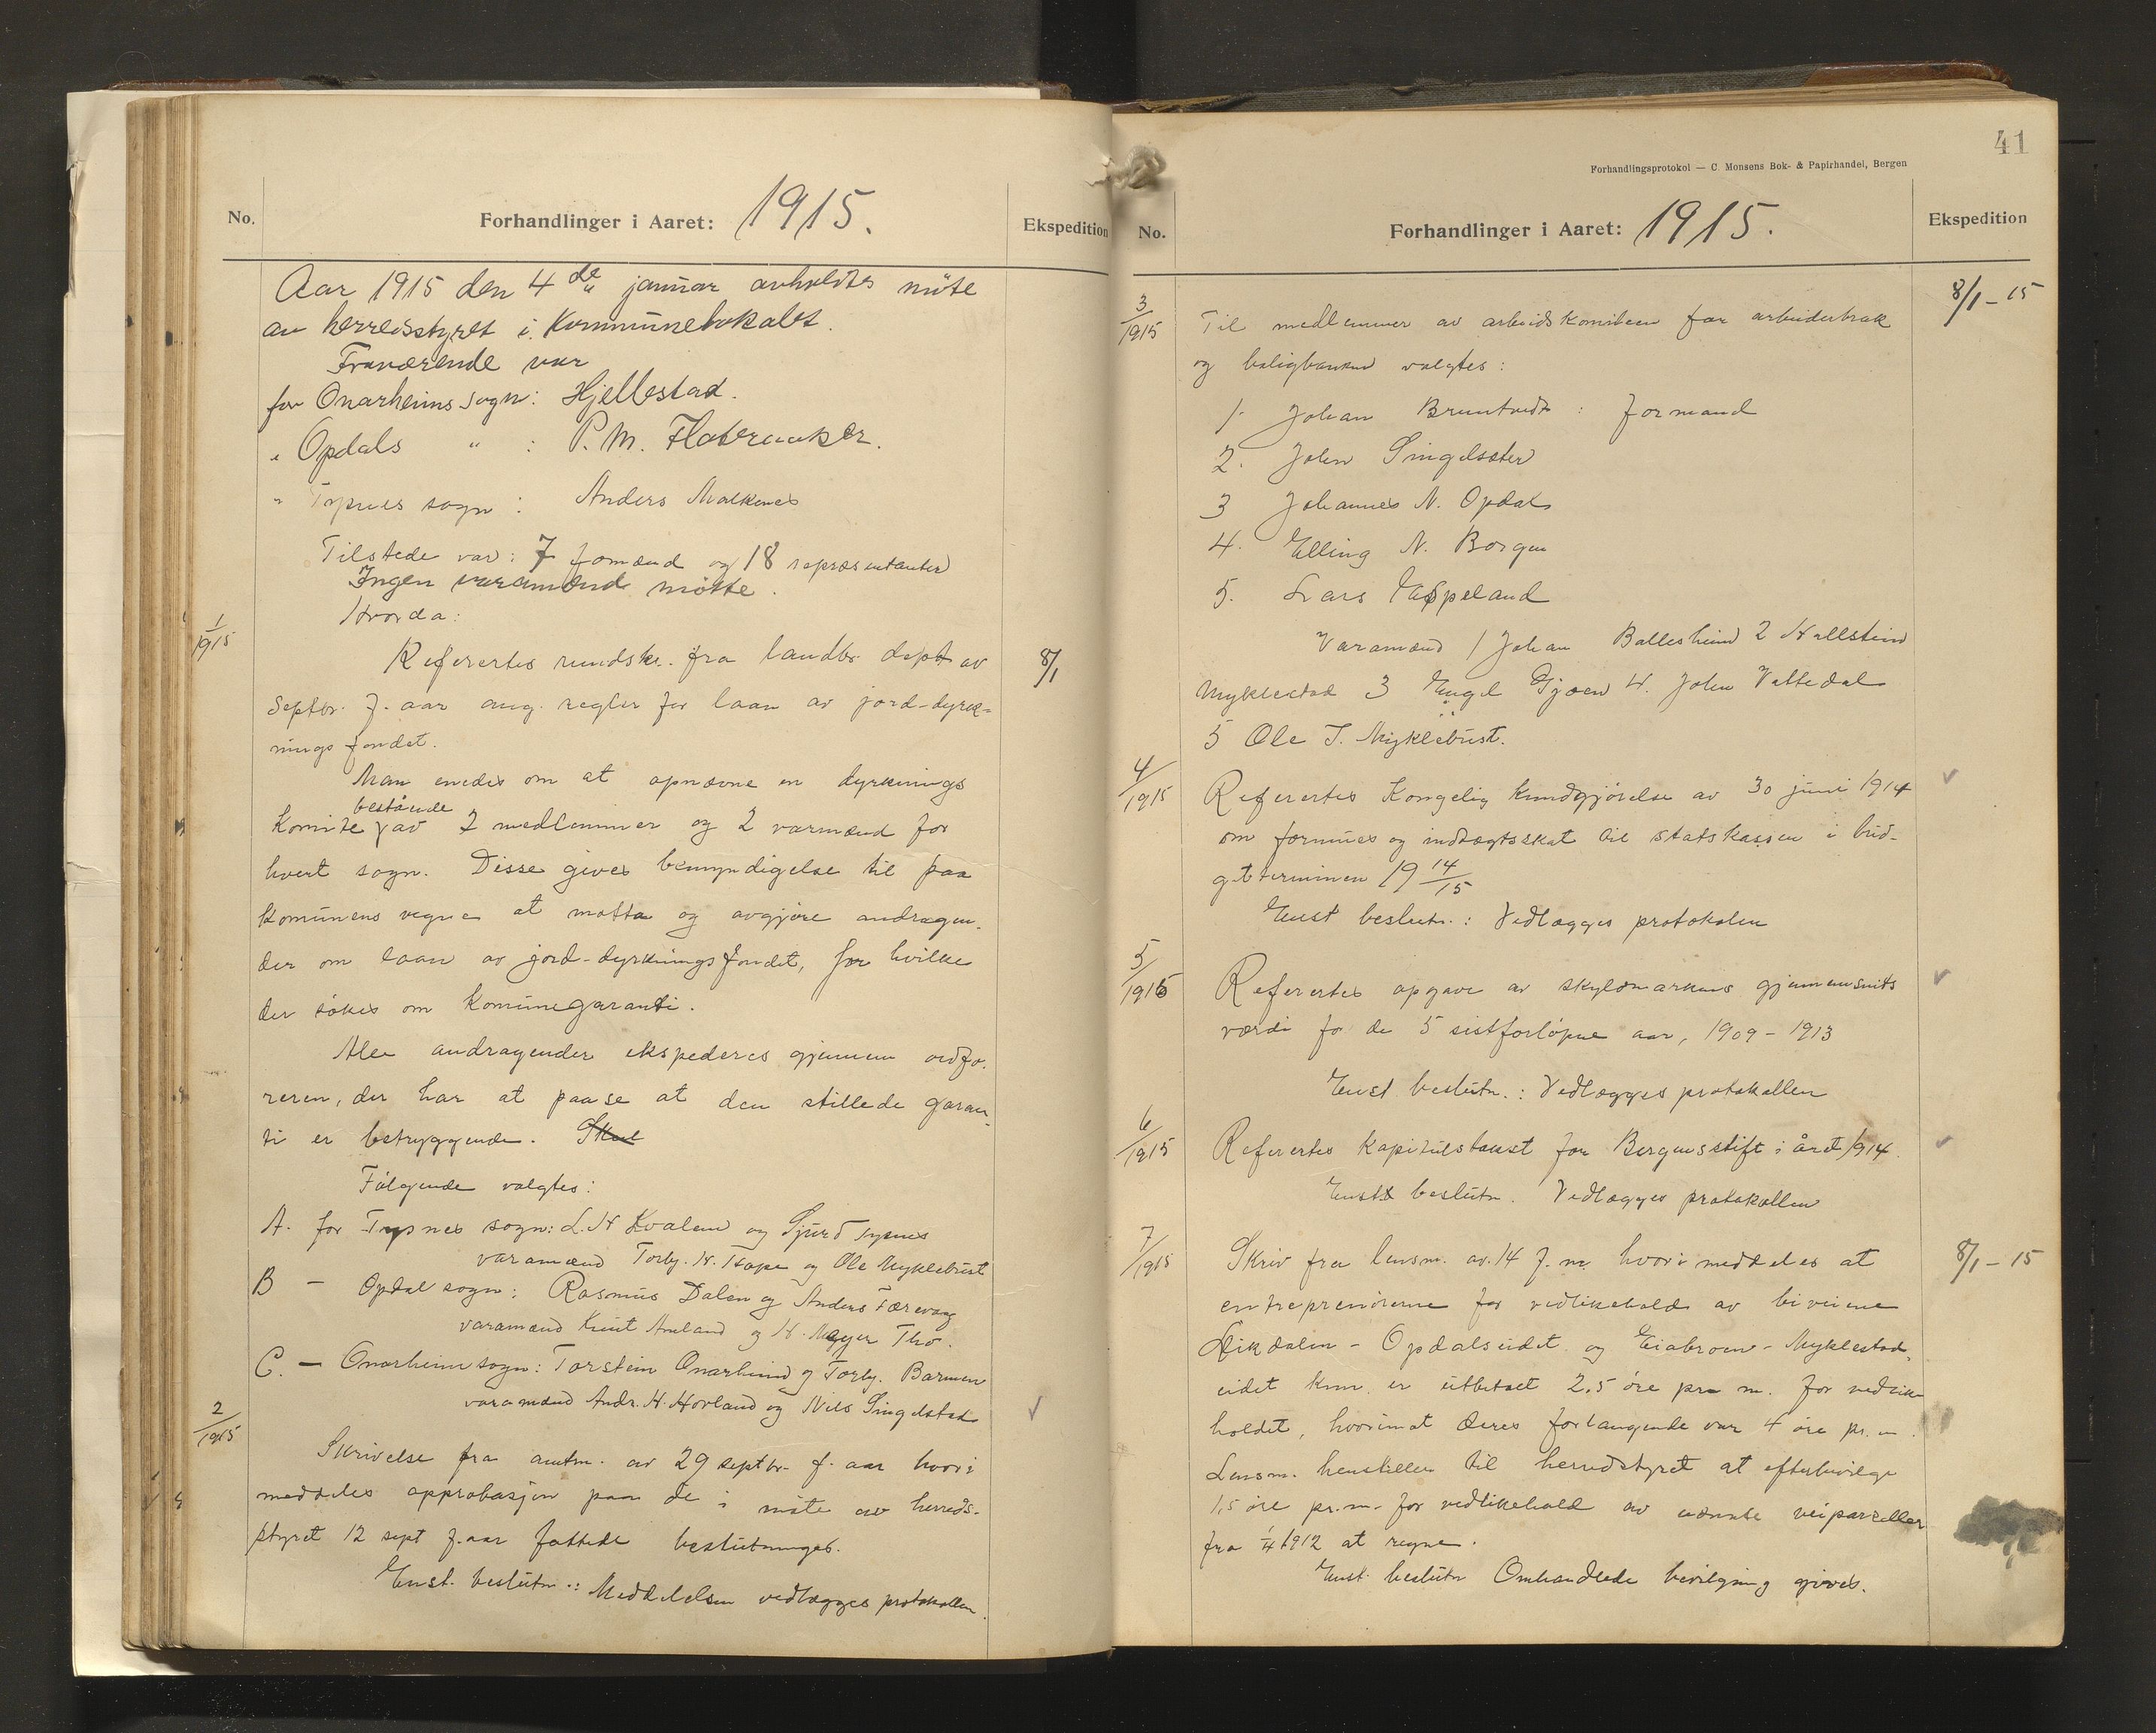 No.
Forhandlinger i Aaret: 1915.
Ekspedition
Aar 1915 den 4de januar avholdtes möte
av herredsstyret i Kommunelokalet.
Fraværende var
for Onarheims sogn: Hjellestad.
" Opdals " : P. M. Flateraaker.
" Tysnes sogn : Anders Malkenes
Tilstede var: 7 formænd og 18 repræsentanter
Ingen varamænd mötte.
Hvorda:
1/1915
Referertes rundskr. fra landbr. dept av
8/1
Septbr. f. aar ang. regler for laan av jord-dyrk-
nings fondet.
Man enedes om at opnævne en dyrknings
bestående
Komite av 2 medlemmer og 2 varmænd for
hvert sogn. Disse gives bemyndigelse til paa
Komunens vegne at motta og avgjöre andragen-
der om laan av jord-dyrknings fondet, for hvilke
der sökes om Komunegaranti.
Alle andragender ekspederes gjennem ordfö-
reren, der har at paase at den stillede garan-
ti er betryggende. Skul
Fölgende valgtes:
A. for Tysnes sogn: L. H Kvalem og Sjurd Tysnes
varamænd Torbj. N. Hope og Ole Myklebust
B - Opdal sogn: Rasmus Dalen og Anders Færevaag
varamænd Knut Aneland og H. Meyer Thu.
C. - Onarheim sogn: Torstein Onarheim og Torbj. Barmen
varamænd Andr. H. Hovland og Nils Singelstad
2/1915
Skrivelse fra amtm. av 29 septbr. f. aar hvori
meddeles approbasjon paa de i möte av herreds-
styret 12 sept f. aar fattede beslutninger.
Enst. beslutn.: Meddelelsen vedlægges protokollen.
41
Forhandlingsprotokol — C. Monsens Bok- & Papirhandel, Bergen
No.
Forhandlinger i Aaret: 1915.
Ekspedition
3/1915
8/1-15
Til medlemmer av arbeidskomiteen for arbeiderbruk
og boligbanken valgtes:
1. Johan Bruntveit : formand
2. John Singelsten
3 Johannes N. Opdal
4. Elling N. Borgen
5. Lars Espeland
Varamænd 1 Johan Balleshiem 2 Hallstein
Myklestad 3 Engel Gjöen 4. John Vattedal
5 Ole J. Myklebust.
4/1915
Referertes Kongelig kundgjörelse av 30 juni 1914
om formues og indtægtsskat til statskassen i bud-
getterminen 19 14/15
Enst beslutn.: Vedlægges protokolen
5/1915
Referertes opgave av skyldmarkens gjennemsnits
værdi for de 5 sistforlöpne aar, 1909-1913
Enst beslutn.: Vedlægges protokollen
6/1915
Referertes Kapitulstakst for Bergens stift i året 1914.
Enst beslutn. Vedlægges protokollen
7/1915
8/1-15
Skriv fra lensm. av 14 f. m. hvori meddeles at
entreprenörerne for vedlikehold av biveiene
Leikdalen - Opdalseidet og Eiabroen - Myklestad-
eidet kun er utbetalt 2.5 öre pr m. for vedlike
holdet, hvorimot deres forlangende var 4 öre pr. m.
Lensm. henstiller til herredstyret at efterbevilge
1,5 öre pr. m. for vedlikehold av nævnte veiparceller
fra 1/4 1912 at regne.
Enst beslutn Omhandlede bevilgning gives.